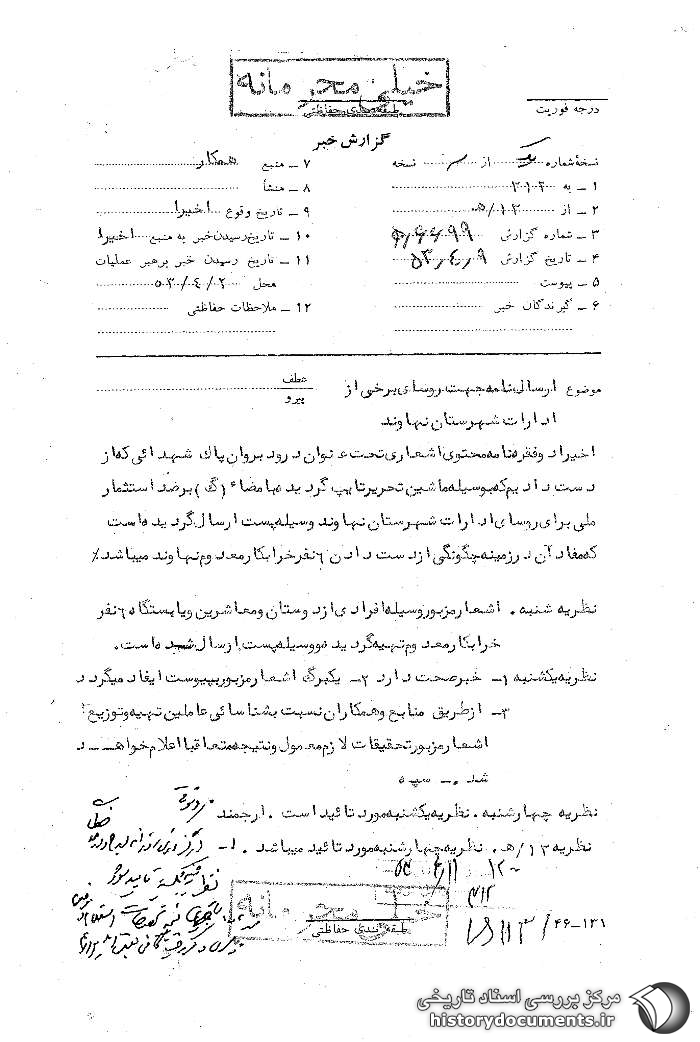 خیلی محرمانه
طبقه‌بندی حفاظتی
درجه فوریت
گزارش خبر
نسخهٔ شماره یک از نسخه
۱ ــ به ۳۱۲
۲ ــ از ۱۲/ه
۳ ــ شماره گزارش
۴ ــ تاریخ گزارش ۵۳٫۴٫۹
۵ ــ پیوست
۶ ــ گیرندگان خبر
۷ ــ منبع همکار
۸ ــ منشأ
۹ ــ تاریخ وقوع اخیرا
۱۰ ــ تاریخ رسیدن خبر به منبع اخیرا
۱۱ ــ تاریخ رسیدن خبر برهبر عملیات
محل ۵۳/۴/۲
۱۲ ــ ملاحظات حفاظتی
موضوع ارسال نامه جهت روسای برخی از
ادارات شهرستان نهاوند
عطف
پیرو
اخیرا دوفقره نامه محتوی اشعاری تحت عنوان درود بروان پاک شهدائی که از
دست دادیم که بوسیله ماشین تحریر تایپ گردیده با مضاء (گ) بر ضد استثمار
ملی برای روسای ادارات شهرستان نهاوند وسیله پست ارسال گردیده است
که مفاد آن در زمینه چگونگی از دست دادن ۶ نفر خرابکار معدوم نهاوند میباشد٪
نظریه شنبه . اشعار مزبور وسیله افرادی از دوستان و معاشرین و یا بستگان ۶ نفر
خرابکار معدوم تهیه گردیده و وسیله پست ارسال شده است.
نظریه یکشنبه ۱ــ خبر صحت دارد ۲ــ یکبرگ اشعار مزبور بپیوست ایفاد میگردد
۳ــ از طریق منابع و همکاران نسبت بشناسائی عاملین تهیه و توزیع
اشعار مزبور تحقیقات لازم معمول و نتیجه متعاقبا اعلام خواهـــد
شد .ــ سپه
نظریه چهارشنبه . نظریه یکشنبه مورد تائید است . ارجمند
نظریه ۱۳/ه . نظریه چهارشنبه مورد تائید میباشد . ۱ــ
۳۱۲
خیلی محرمانه
طبقه‌بندی حفاظتی
۴۶-۱۳۱
مرکز بررسی اسناد تاریخی
historydocuments.ir